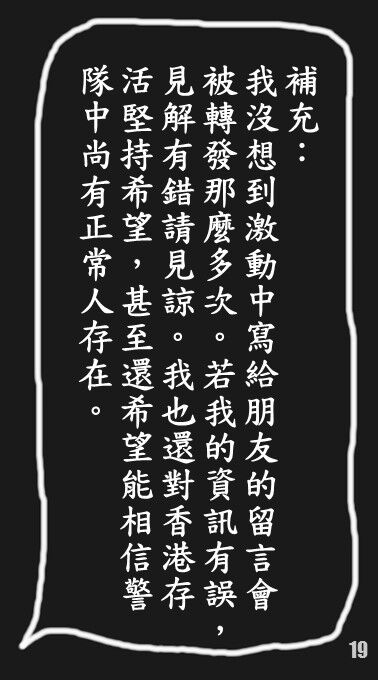 補充：
我沒想到激動中寫給朋友的留言會
被轉發那麼多次。若我的資訊有誤，
見解有錯請見諒。我也還對香港存
活堅持希望，甚至還希望能相信警
隊中尚有正常人存在。
19